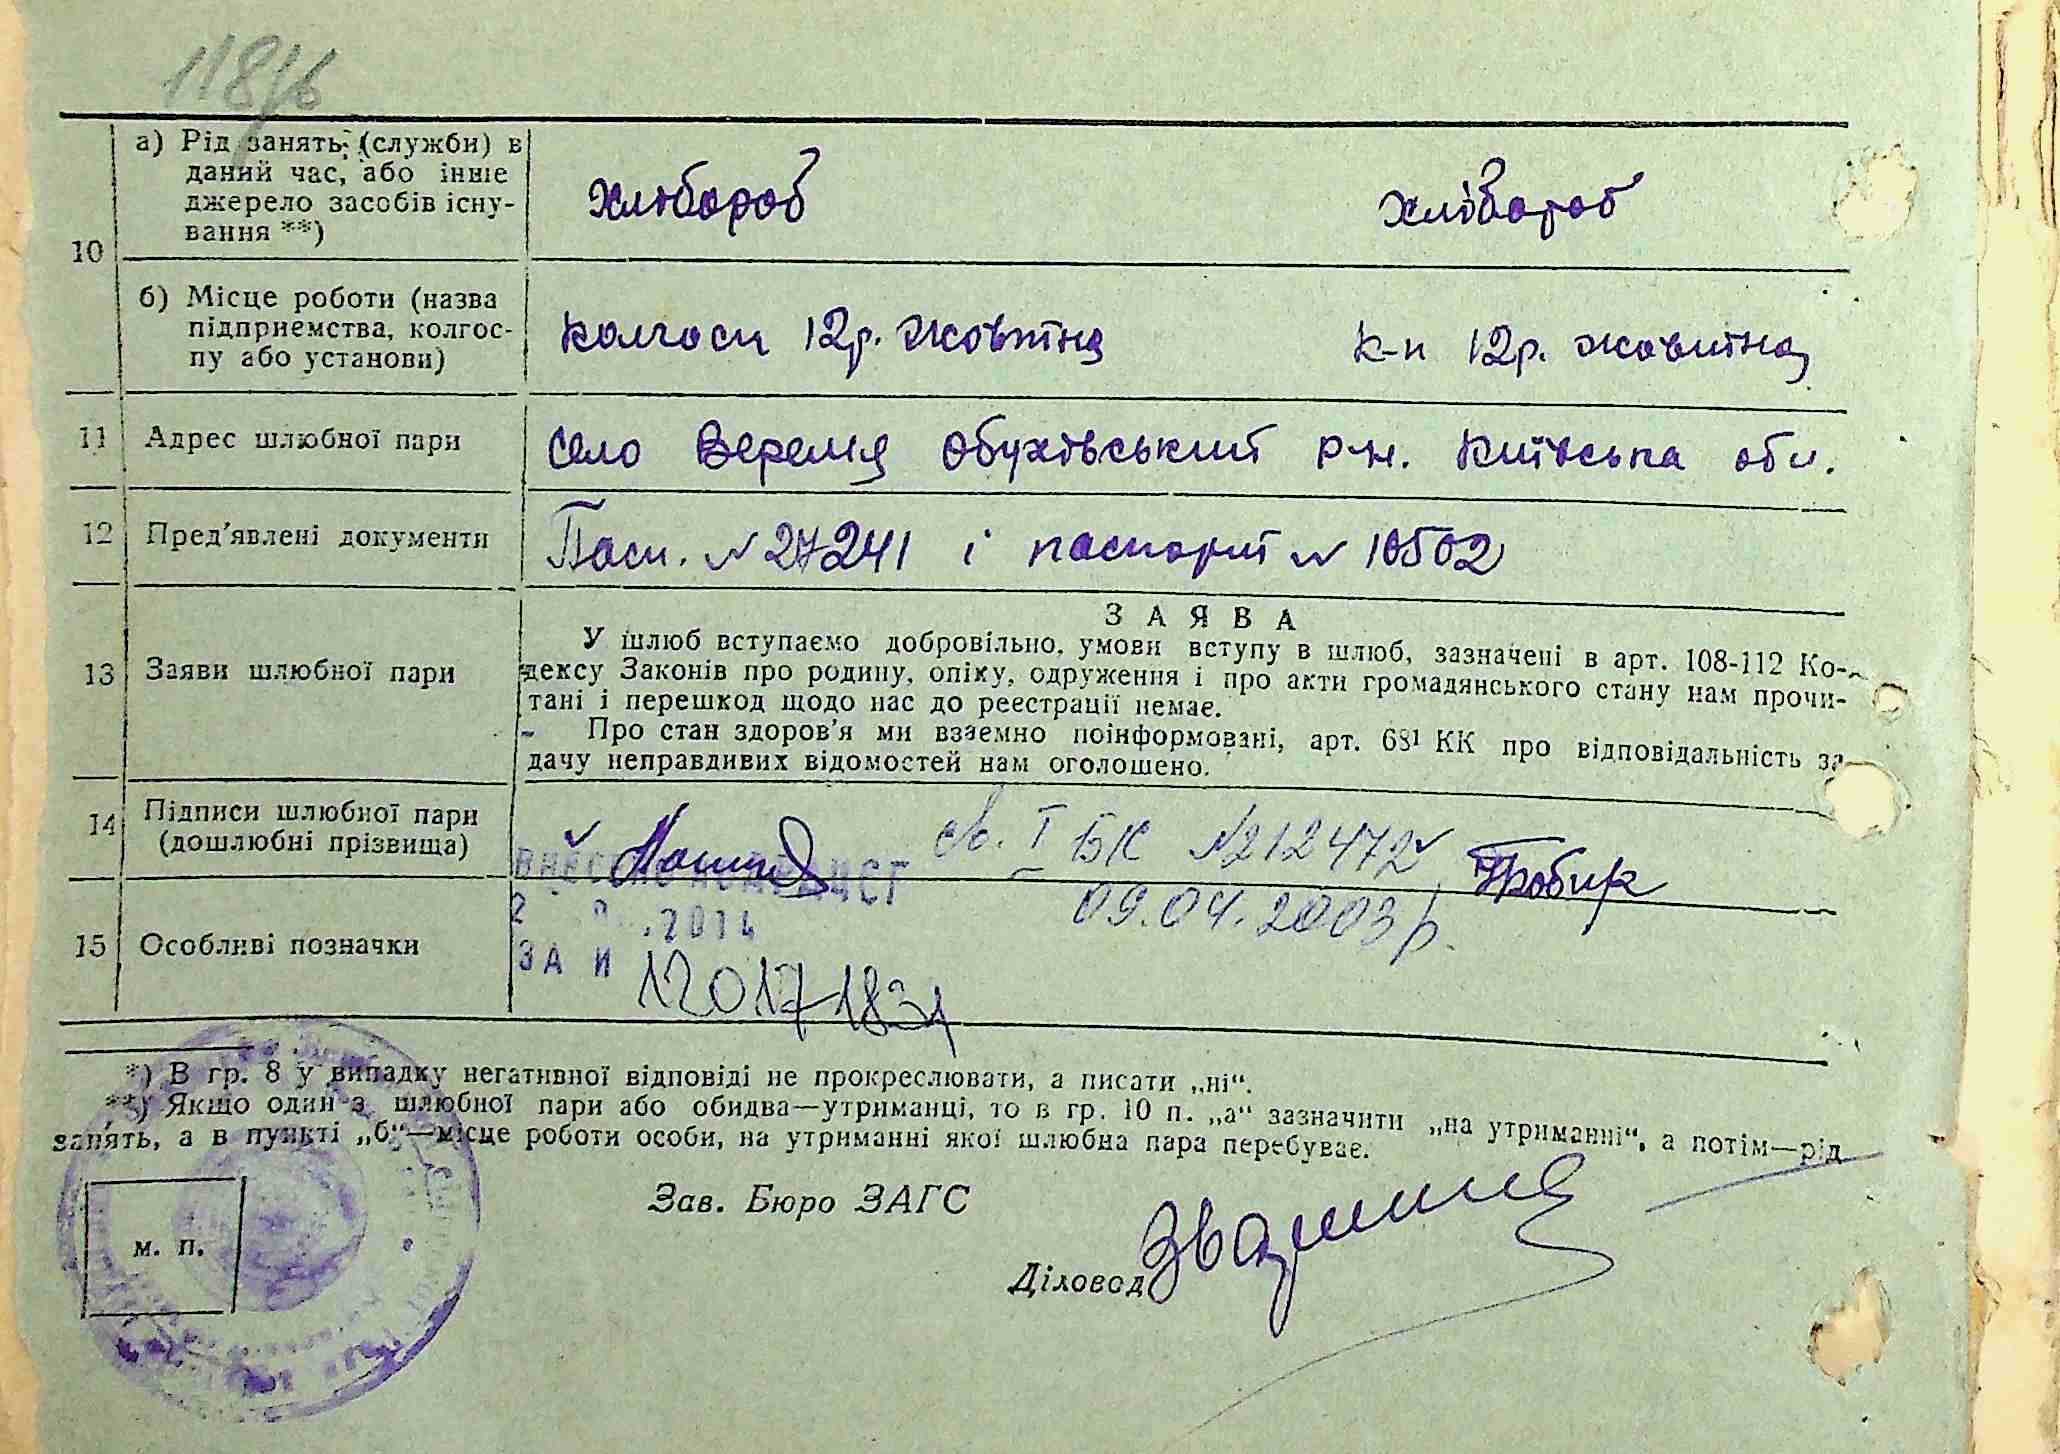 118/6
а) Рід занять (служби) в
даний час, або інше
джерело засобів існу-
вання **)
хлібороб хлібороб
10
б) Місце роботи (назва
підприємства, колгос-
пу або установи)
колгосп 12 р. жовтня к-п 12 р. жовтня
11 Адрес шлюбної пари село Веремя Обухівський р-н. Київська обл.
12 Пред'явлені документи Пасп. № 27241 і паспорт № 10502
13 Заяви шлюбної пари
ЗАЯВА
У шлюб вступаємо добровільно, умови вступу в шлюб, зазначені в арт. 108-112 Ко-
дексу Законів про родину, опіку, одруження і про акти громадянського стану нам прочи-
тані і перешкод щодо нас до реєстрації немає.
Про стан здоров'я ми взаємно поінформовані, арт. 68¹ КК про відповідальність за
дачу неправдивих відомостей нам оголошено.
14 Підписи шлюбної пари
(дошлюбні прізвища)
св. І БК №212472
09.04.2003р.
ВНЕСЕНО ДО ДРАЦСГ
2014
ЗА №
12017183
15 Особливі позначки
*) В гр. 8 у випадку негативної відповіді не прокреслювати, а писати „ні“.
**) Якщо один з шлюбної пари або обидва—утриманці, то в гр. 10 п. „а“ зазначити „на утриманні“, а потім—рід
занять, а в пункті „б“—місце роботи особи, на утриманні якої шлюбна пара перебуває.
Зав. Бюро ЗАГС
м. п.
Діловод